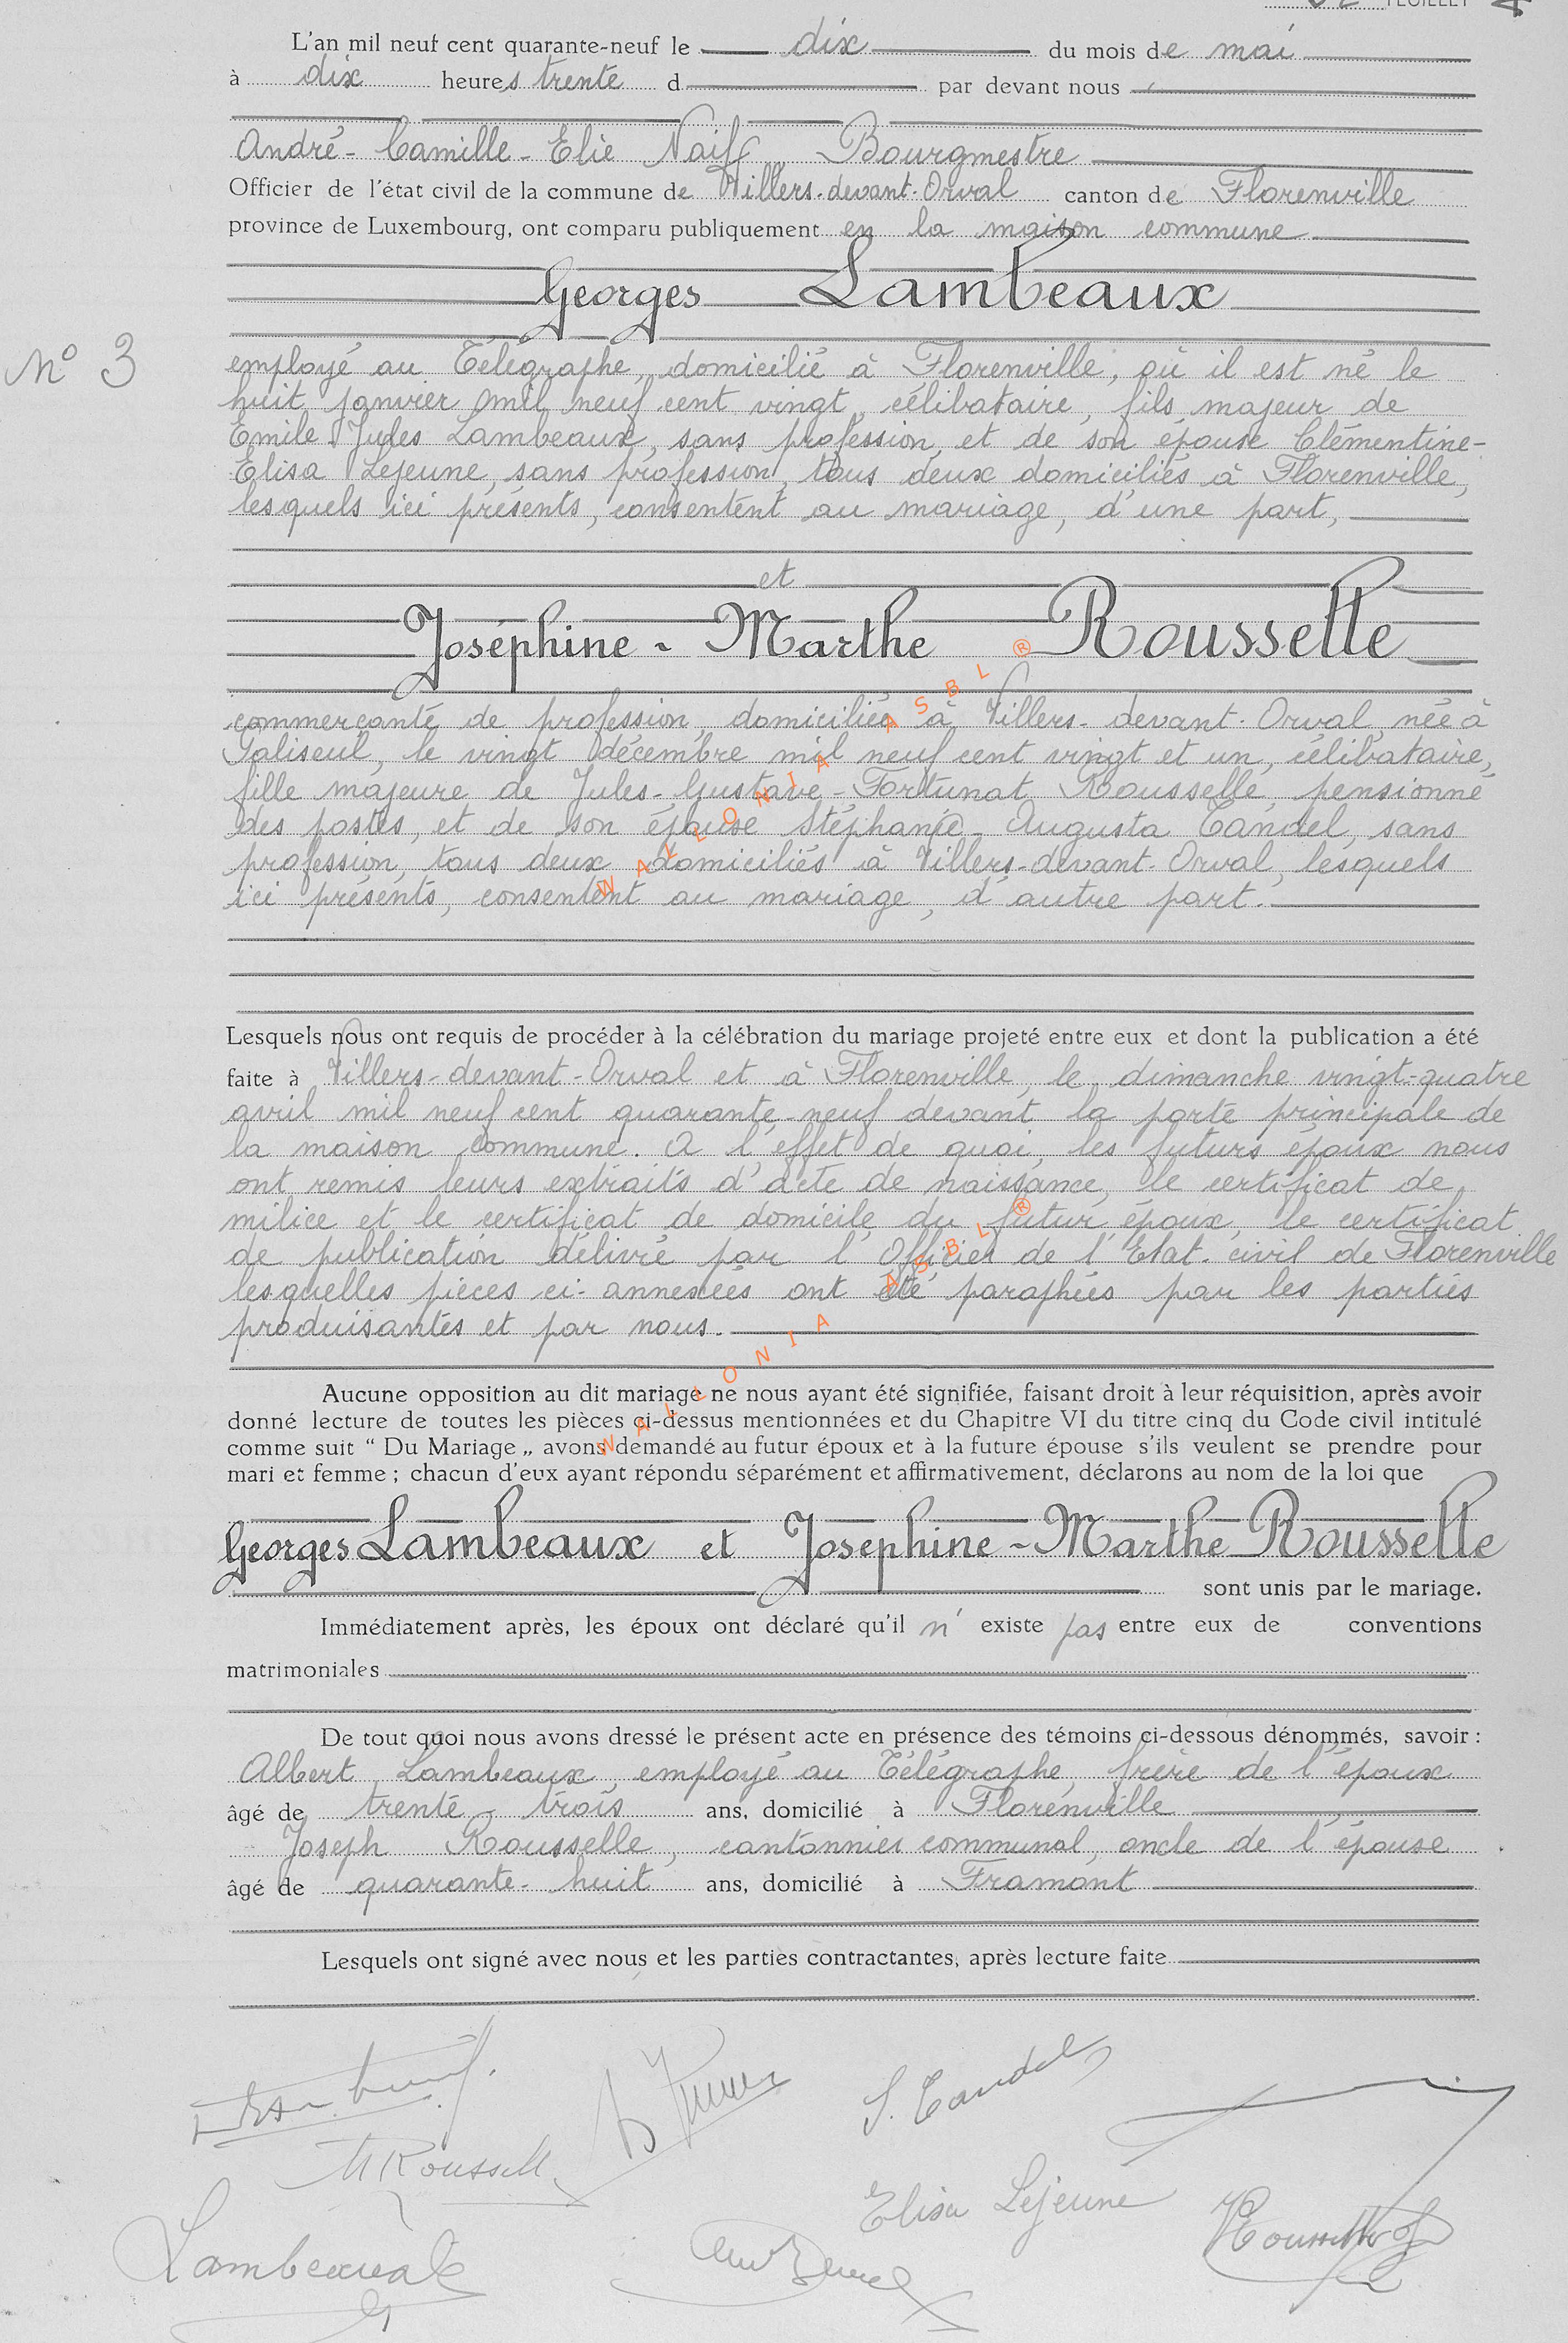 FEUILLET
L'an mil neuf cent quarante-neuf le dix du mois de mai
à dix heures trente d par devant nous
André-Camille-Elie Naif Bourgmestre
Officier de l'état civil de la commune de Villers-devant-Orval canton de Florenville
province de Luxembourg, ont comparu publiquement en la maison commune
Georges Lambeaux
N° 3
employé au Télégraphe, domicilié à Florenville, où il est né le
huit janvier mil neuf cent vingt, célibataire, fils majeur de
Emile-Jules Lambeaux, sans profession, et de son épouse Clémentine-
Elisa Lejeune, sans profession, tous deux domiciliés à Florenville,
lesquels ici présents, consentent au mariage, d'une part,
et
Joséphine-Marthe Rousselle
commerçante de profession, domiciliée à Villers-devant-Orval, née à
Paliseul, le vingt décembre mil neuf cent vingt et un, célibataire,
fille majeure de Jules-Gustave-Fortunat Rousselle, pensionné
des postes, et de son épouse Stéphanie-Augusta Tandel, sans
profession, tous deux domiciliés à Villers-devant-Orval, lesquels
ici présents, consentent au mariage, d'autre part.
WALLONIA ASBL ®
Lesquels nous ont requis de procéder à la célébration du mariage projeté entre eux et dont la publication a été
faite à Villers-devant-Orval et à Florenville, le dimanche vingt-quatre
avril mil neuf cent quarante-neuf devant la porte principale de
la maison commune. A l'effet de quoi, les futurs époux nous
ont remis leurs extraits d'acte de naissance, le certificat de
milice et le certificat de domicile du futur époux, le certificat
de publication délivré par l'Officier de l'Etat-civil de Florenville
lesquelles pièces ci-annexées ont été paraphées par les parties
produisantes et par nous.
WALLONIA ASBL ®
Aucune opposition au dit mariage ne nous ayant été signifiée, faisant droit à leur réquisition, après avoir
donné lecture de toutes les pièces ci-dessus mentionnées et du Chapitre VI du titre cinq du Code civil intitulé
comme suit “ Du Mariage „ avons demandé au futur époux et à la future épouse s'ils veulent se prendre pour
mari et femme ; chacun d'eux ayant répondu séparément et affirmativement, déclarons au nom de la loi que
Georges Lambeaux et Joséphine-Marthe Rousselle
sont unis par le mariage.
Immédiatement après, les époux ont déclaré qu'il n' existe pas entre eux de conventions
matrimoniales
De tout quoi nous avons dressé le présent acte en présence des témoins ci-dessous dénommés, savoir :
Albert Lambeaux, employé au Télégraphe, frère de l'époux
âgé de trente-trois ans, domicilié à Florenville
Joseph Rousselle, cantonnier communal, oncle de l'épouse
âgé de quarante-huit ans, domicilié à Framont
Lesquels ont signé avec nous et les parties contractantes, après lecture faite
S. Tandel
M Rousselle
Elisa Lejeune
Lambeaux